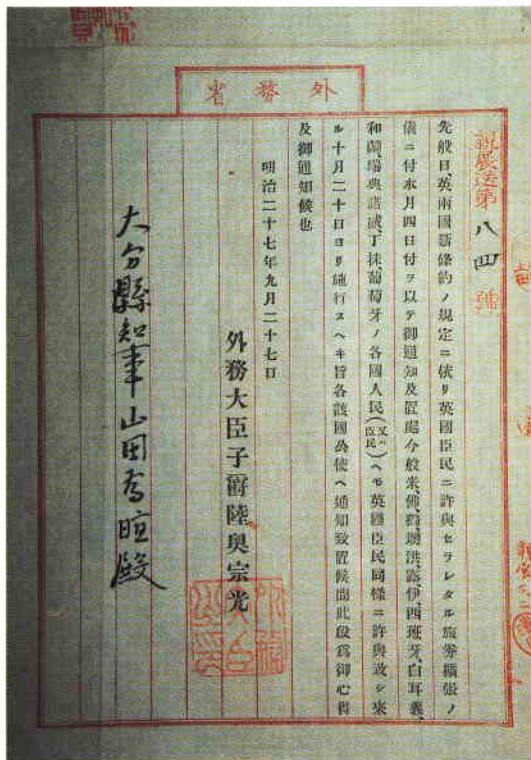 外務省
親展送第八四號
先般日、英兩國新條約ノ規定ニ依リ英國臣民ニ許與セラレタル旅券擴張ノ
儀ニ付本月四日付ヲ以テ御通知及置處今般米、佛、獨、墺洪、露、伊、西班牙、白耳義、
和蘭、瑞典諾威、丁抹、葡萄牙ノ各國人民(又ハ臣民)ヘモ英國臣民同樣ニ許與致シ來
ル十月二十日ヨリ施行スヘキ旨各該國公使ヘ通知致置候間此段爲御心得
及御通知候也
明治二十七年九月二十七日
外務大臣子爵陸奥宗光
大分縣知事山田爲暄殿